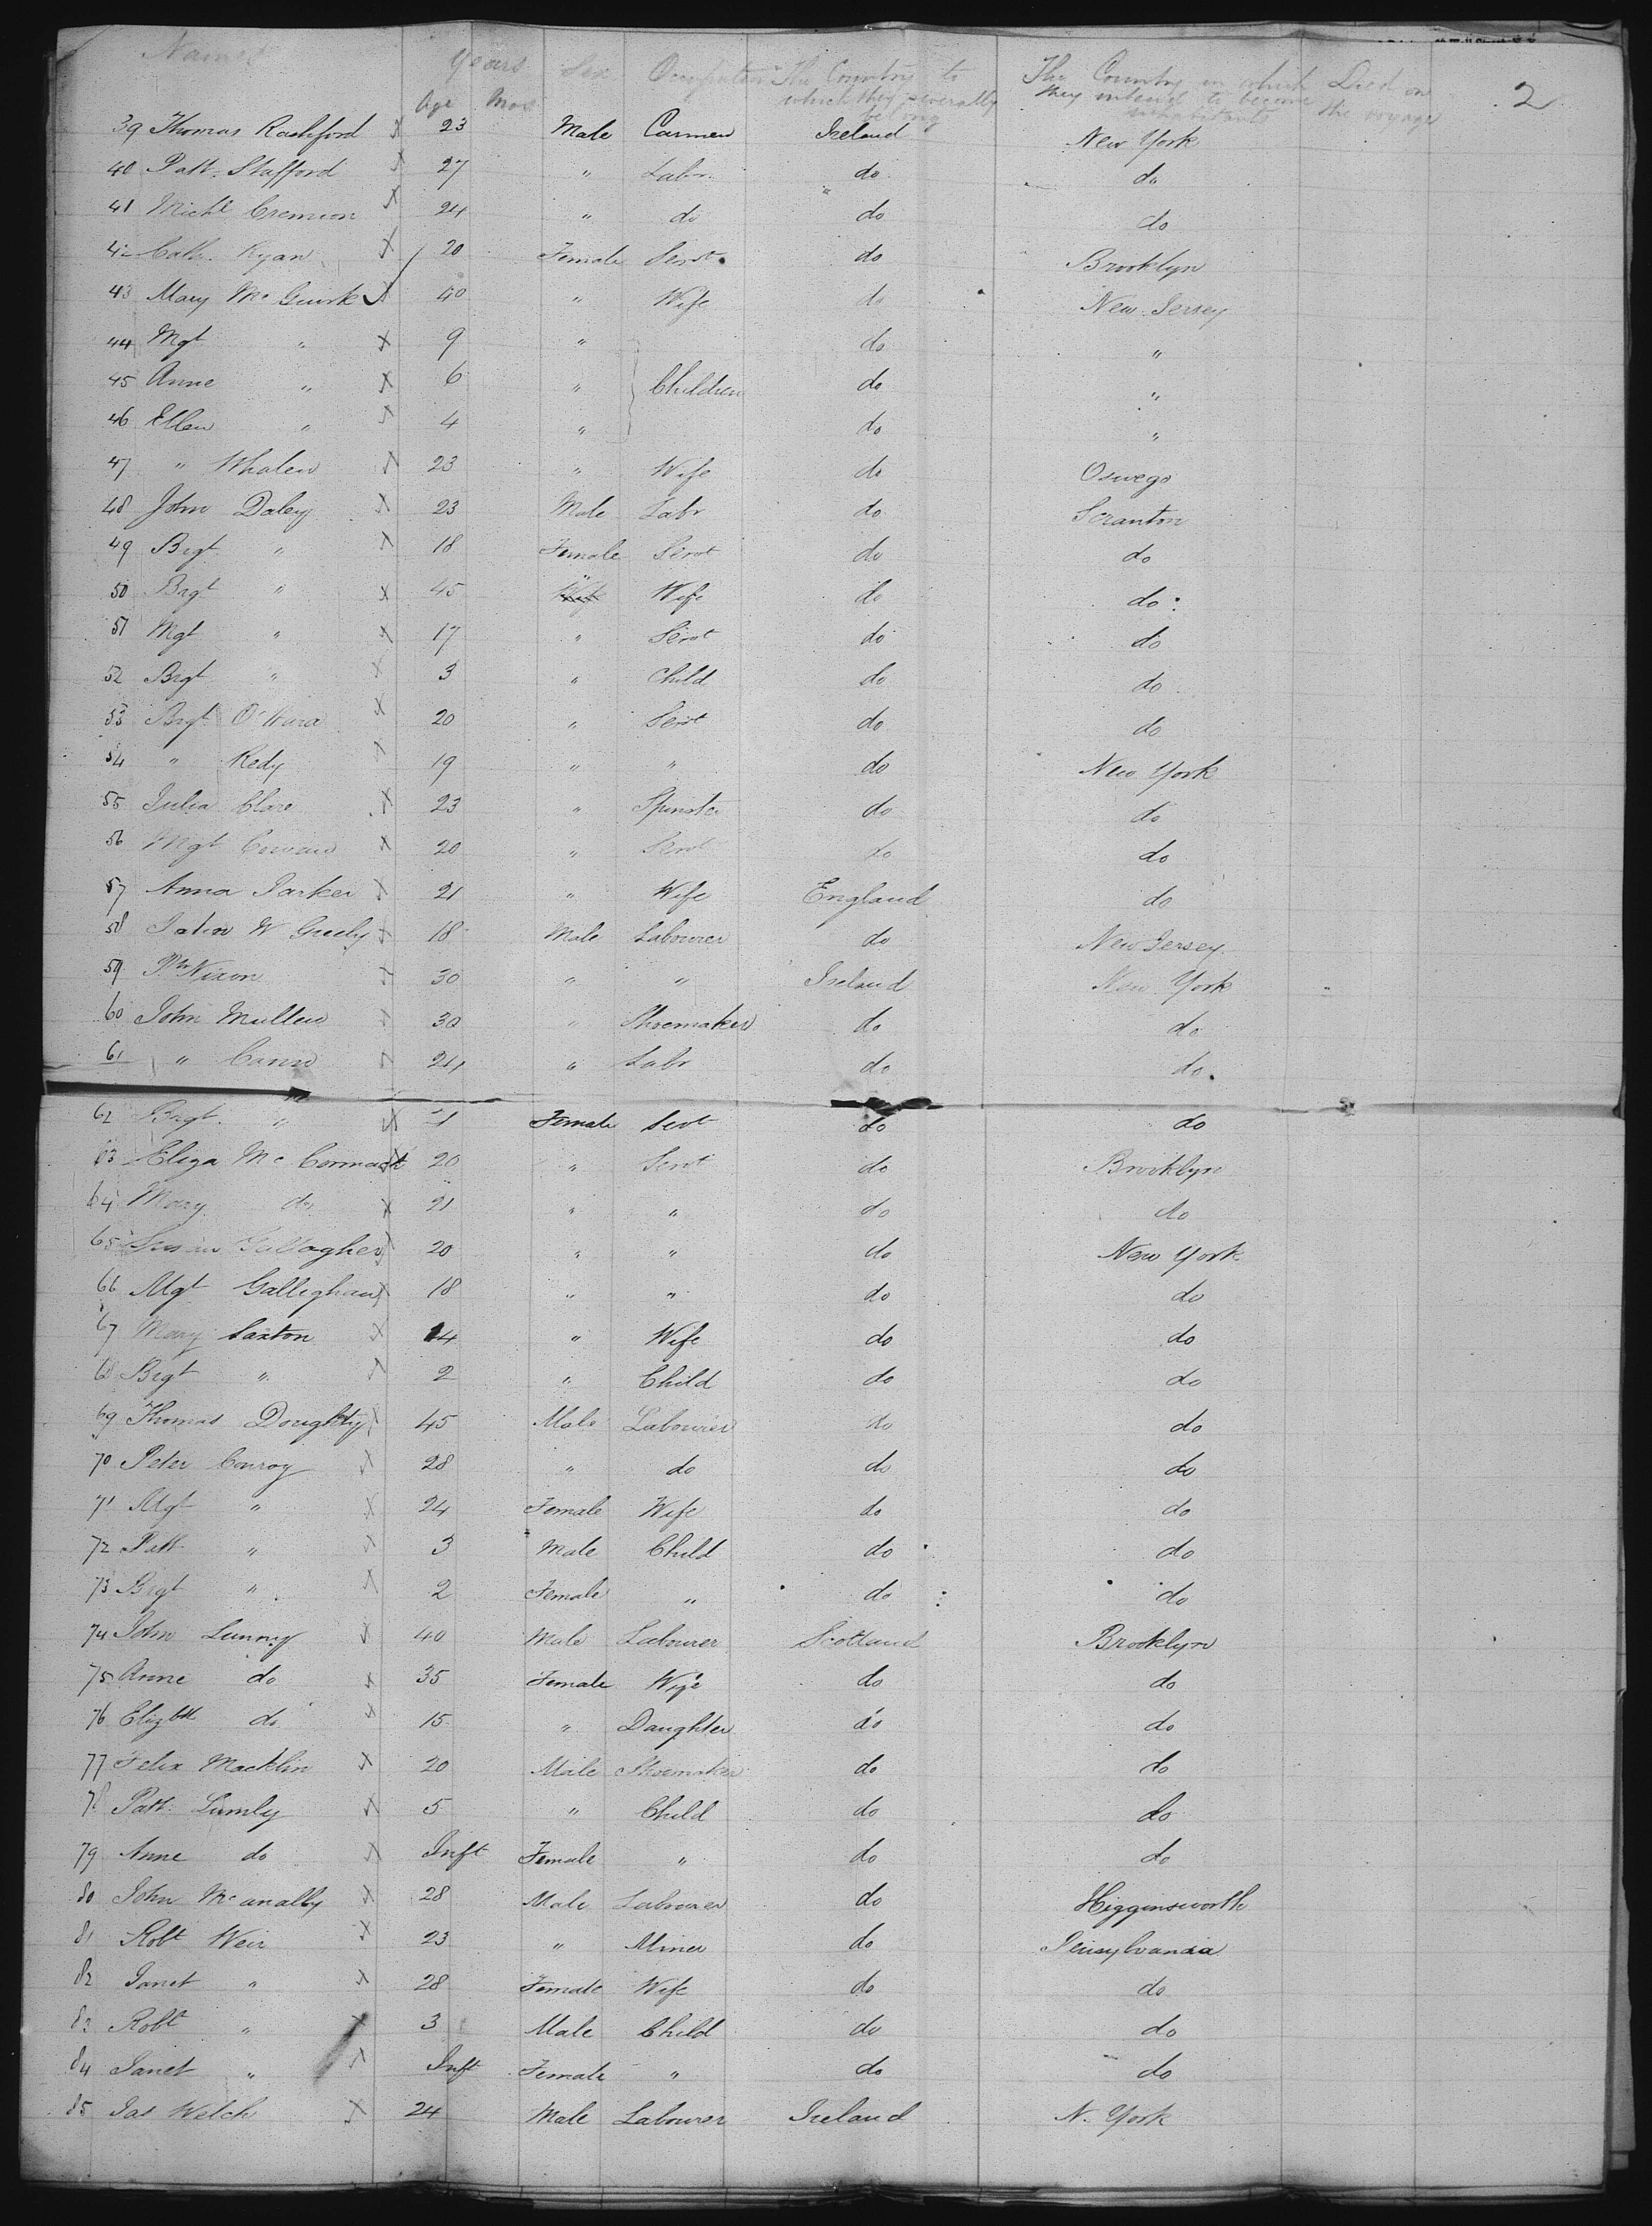 Names Years Sex Occupation The Country to The Country in which Died on 2
Age Mos which they severally they intend to become the voyage
belong inhabitants
39 Thomas Rashford x 23 Male Carmen Ireland New York
40 Patt. Stafford x 27 " Labr. do do
41 Michl x 24 " do do do
42 Cath. Ryan x 20 Female Servt. do Brooklyn
43 Mary Mc Guirk x 40 " Wife do New Jersey
44 Mgt " x 9 " do "
45 Anne " x 6 " Children do "
46 Ellen " x 4 " do "
47 " Whalen x 23 " Wife do Oswego
48 John Daley x 23 Male Labr do Scranton
49 Brgt " x 18 Female Servt do do
50 Brgt " x 45 " Wife do do
51 Mgt " x 17 " Servt do do
52 Brgt " x 3 " Child do do
53 Brgt O'Hara x 20 " Servt do do
54 " Redy x 19 " " do New York
55 Julia Clare x 23 " Spinster do do
56 Mgt x 20 " Servt do do
57 Anna Parker x 21 " Wife England do
58 W x 18 Male Labourer do New Jersey
59 Nixon x 30 " " Ireland New York
60 John Mullen x 30 " Shoemaker do do
61 " Cann x 24 " Labr do do
62 Brgt. " x Female Servt do do
63 Eliza Mc Cormack x 20 " Servt do Brooklyn
64 Mary do x 21 " " do do
65 Susan Gallagher x 20 " " do New York
66 Mgt Galleghan x 18 " " do do
67 Mary Saxton x 24 " Wife do do
68 Brgt " x 2 " Child do do
69 Thomas Doughty x 45 Male Labourer do do
70 Peter Conroy x 28 " do do do
71 Mgt " x 24 Female Wife do do
72 Patt " x 3 Male Child do do
73 Brgt " x 2 Female " do do
74 John Lunny x 40 Male Labourer Scotland Brooklyn
75 Anne do x 35 Female Wife do do
76 Elizbth do x 15 " Daughter do do
77 Felix Macklin x 20 Male Shoemaker do do
78 Patt. Lumly x 5 " Child do do
79 Anne do x Inft Female " do do
80 John Mcanally x 28 Male Labourer do Higginsworth
81 Robt Weir x 23 " Miner do Pensylvania
82 Janet " x 28 Female Wife do do
83 Robt " x 3 Male Child do do
84 Janet " x Inft Female " do do
85 Jas Welch x 24 Male Labourer Ireland N. York